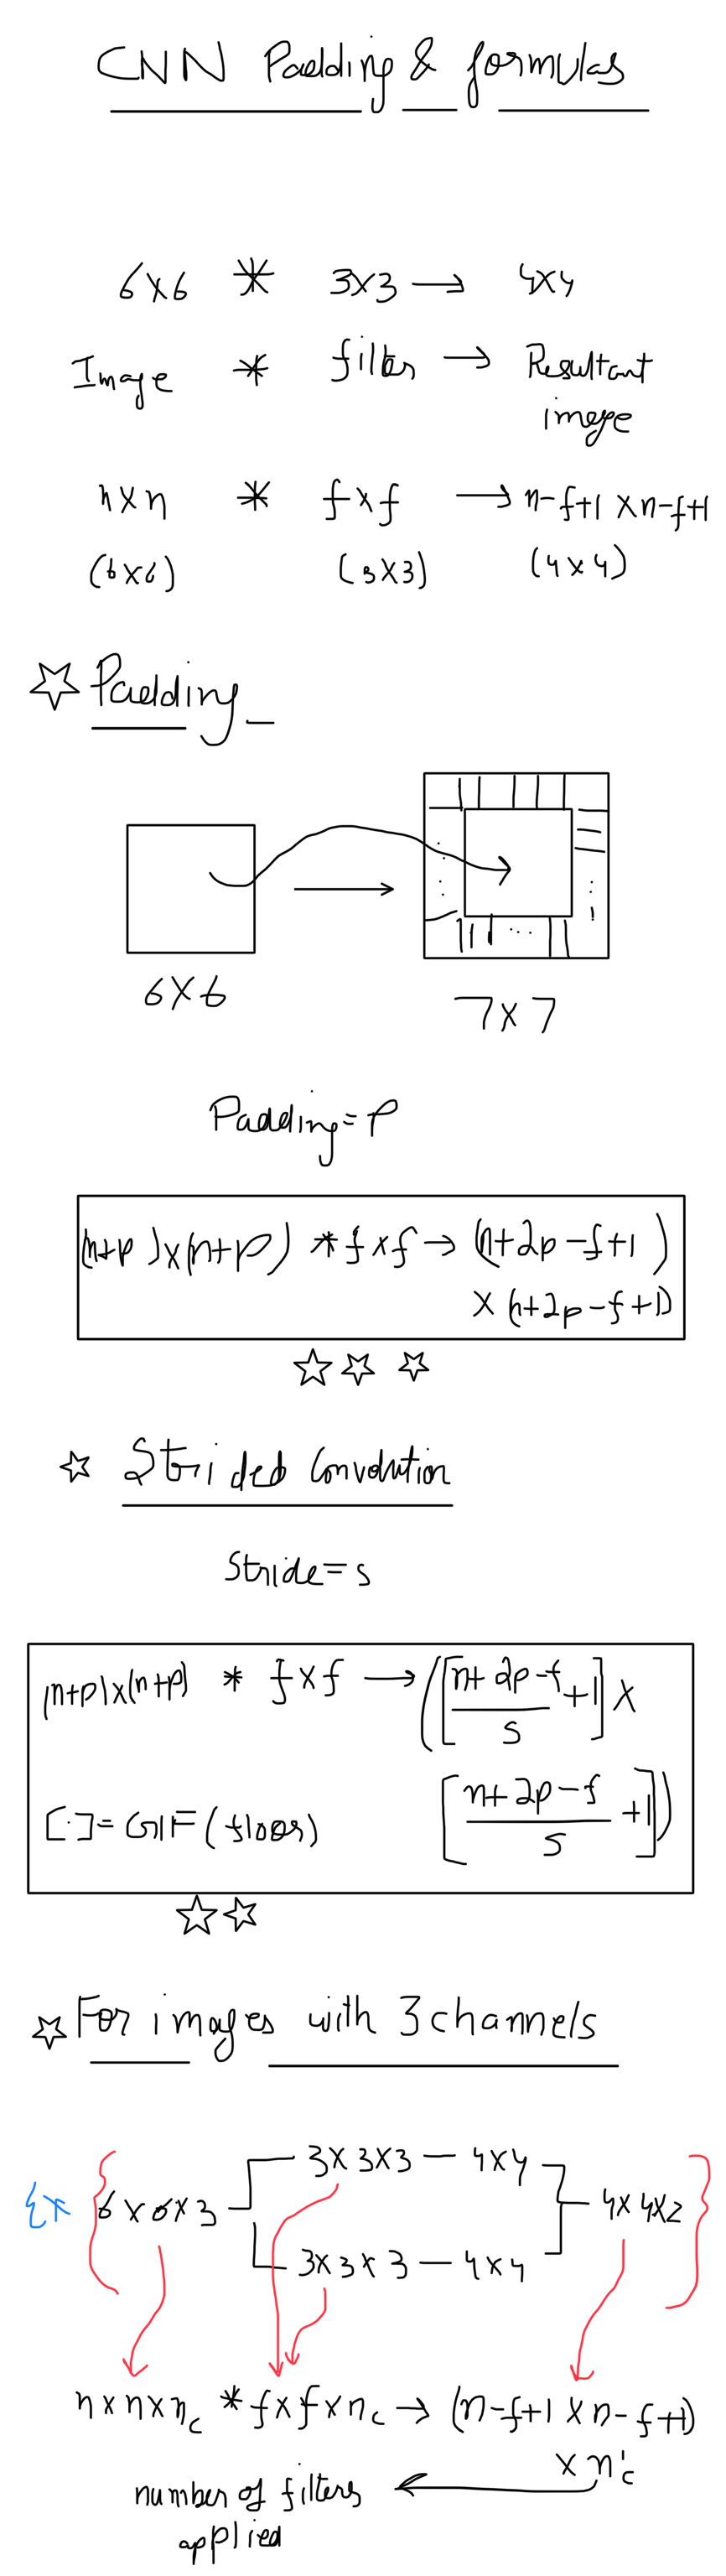 CNN Padding & formulas
6x6 * 3x3 → 4x4
Image * filter → Resultant
image
nxn * fxf → n-f+1 xn-f+1
(6x6) (3x3) (4x4)
☆ Padding_
6x6
7x7
Padding=P
(n+p)x(n+p) *fxf → (n+2p-f+1)
x (n+2p-f+1)
☆☆ ☆
☆ Strided Convolution
Stride=s
(n+p)x(n+p) * fxf → ([(n+2p-f)/s +1] x
[·]=GIF(floor) [(n+2p-f)/s +1])
☆☆
☆ For images with 3 channels
3x3x3 - 4x4
Ex { 6x6x3 4x4x2 }
3x3x3 - 4x4
nxnxn_c *fxfxn_c → (n-f+1 xn-f+1)
x n'_c
number of filters
applied